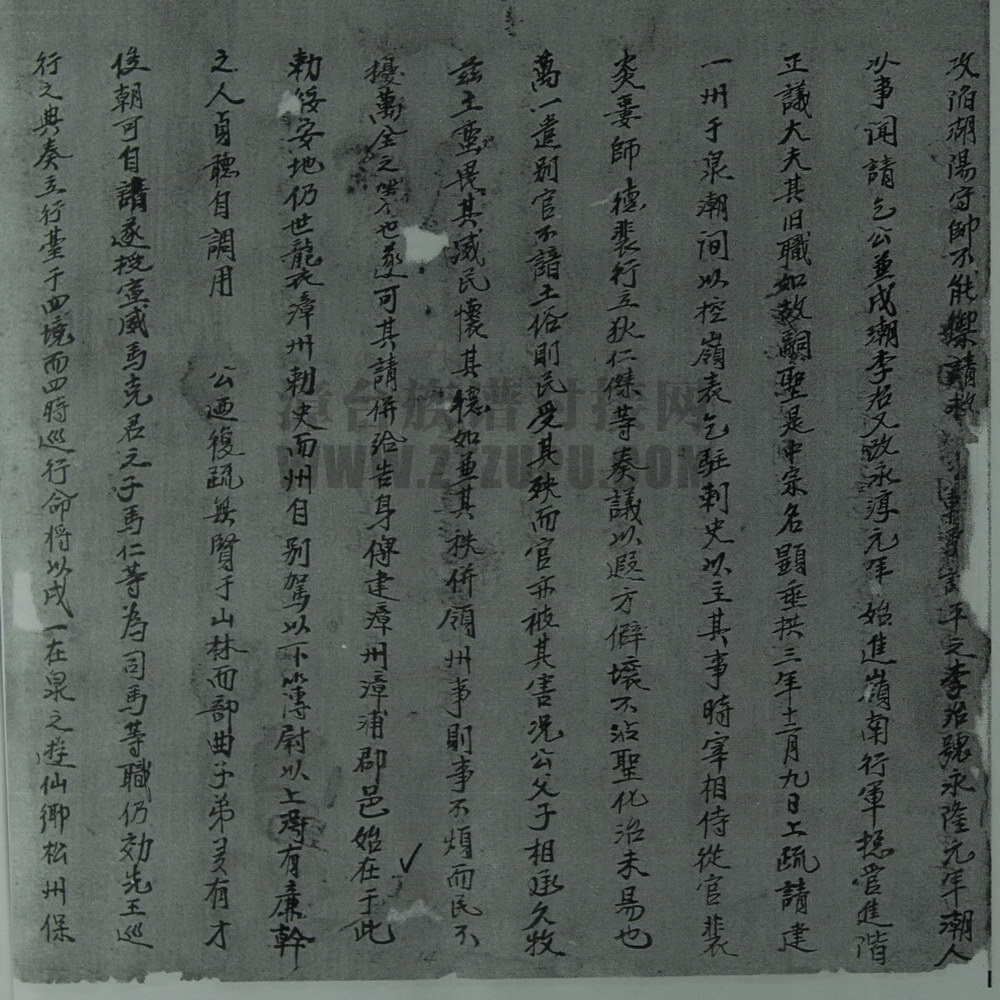 攻陷潮陽守帥不能禦請救 平之李治號永隆元年潮人
以事闻請乞公兼戍潮李君又改永淳元年 始進嶺南行軍揔管進階
正議大夫其旧職如故嗣聖是中宗名顯垂拱三年十二月九日上疏請建
一州于泉潮间以控嶺表乞驻刺史以主其事時宰相侍從官裴
炎婁師德裴行立狄仁傑等奏議以遐方僻壤不沾聖化治未易也
萬一遣别官不諳土俗則民受其殃而官亦被其害况公父子相承久牧
兹土蛮畏其威民懷其德如兼其秩併領州事則事不煩而民不
擾萬全之 也遂可其請併給告身傅建漳州漳浦郡邑始在于此
勅绥安地仍世龍 漳州勅史而州自别駕以下簿尉以上 有廉幹
之人 聽自調用 公迺復疏無賢于山林而部曲子弟 有才
俊朝可自請遂授宣威馬克君元子馬仁等為司馬等職仍効先王巡
行之典奏立行臺于四境而四時巡行命将以戍一在泉之遊仙鄉松州保
漳台族譜对接网
WWW.ZTZUPU.COM